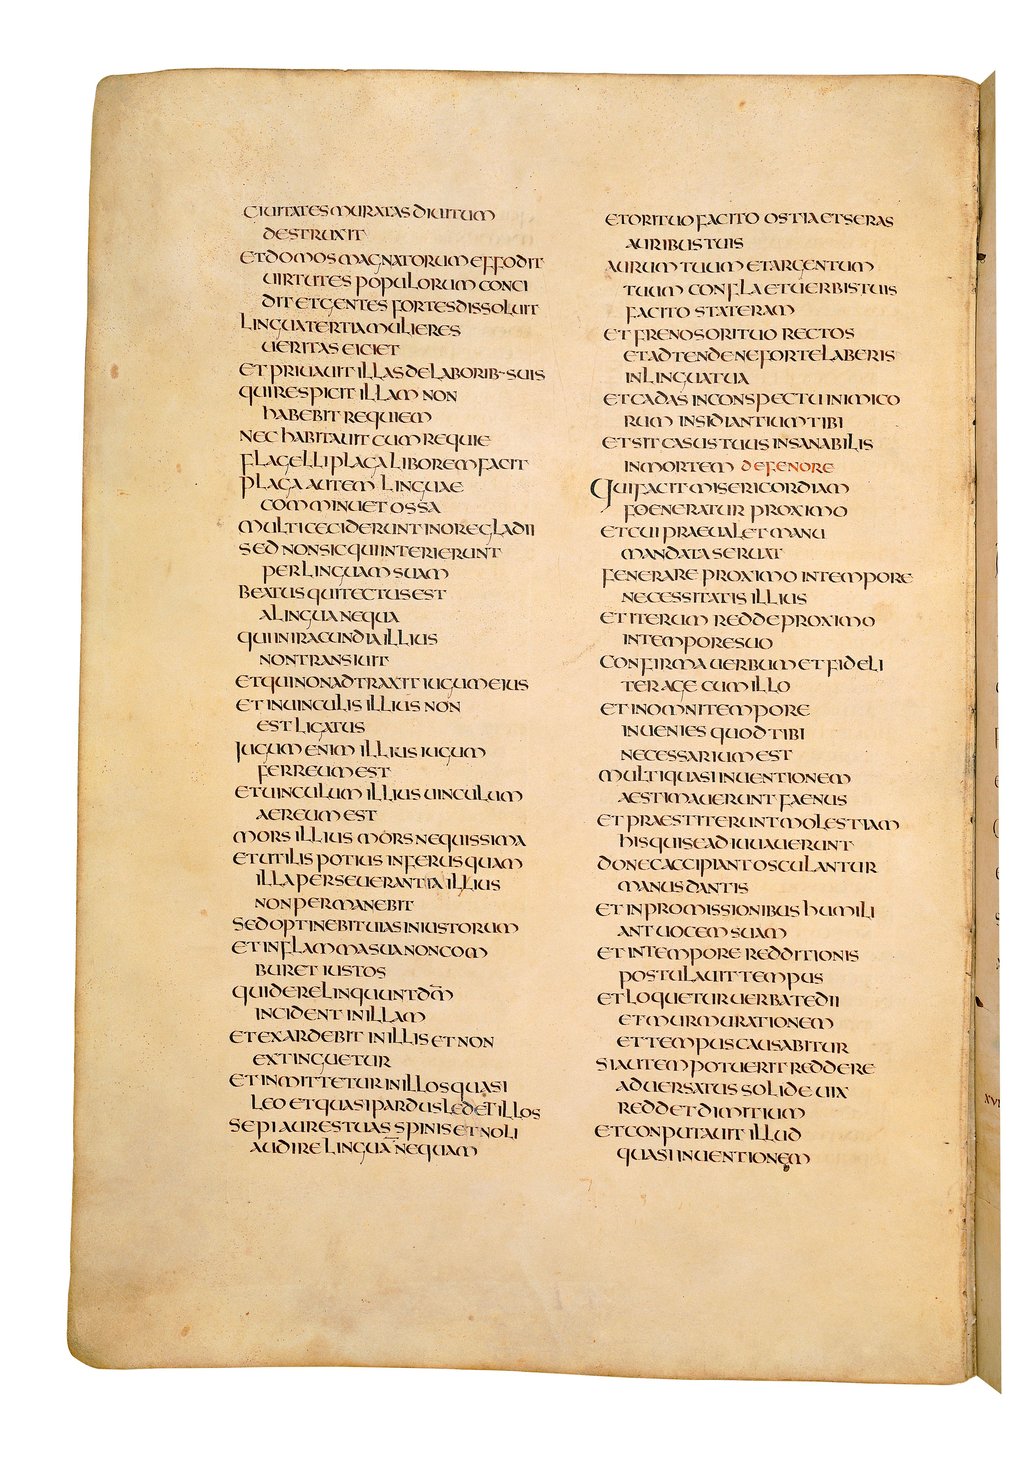 CIUITATES MURATAS DIUITUM
DESTRUXIT
ET DOMOS MAGNATORUM EFFODIT
UIRTUTES POPULORUM CONCI
DIT ET GENTES FORTES DISSOLUIT
LINGUA TERTIA MULIERES
UERITAS EICIET
ET PRIUAUIT ILLAS DE LABORIB· SUIS
QUI RESPICIT ILLAM NON
HABEBIT REQUIEM
NEC HABITAUIT CUM REQUIE
FLAGELLI PLAGA LIBOREM FACIT
PLAGA AUTEM LINGUAE
COMMINUET OSSA
MULTI CECIDERUNT IN ORE GLADII
SED NON SIC QUI INTERIERUNT
PER LINGUAM SUAM
BEATUS QUI TECTUS EST
A LINGUA NEQUA
QUI IN IRACUNDIA ILLIUS
NON TRANSIUIT
ET QUI NON ADTRAXIT IUGUM EIUS
ET IN UINCULIS ILLIUS NON
EST LIGATUS
IUGUM ENIM ILLIUS IUGUM
FERREUM EST
ET UINCULUM ILLIUS UINCULUM
AEREUM EST
MORS ILLIUS MORS NEQUISSIMA
ET UTILIS POTIUS INFERUS QUAM
ILLA PERSEUERANTIA ILLIUS
NON PERMANEBIT
SED OPTINEBIT UIAS INIUSTORUM
ET IN FLAMMA SUA NON COM
BURET IUSTOS
QUI DERELINQUUNT DM̄
INCIDENT IN ILLAM
ET EXARDEBIT IN ILLIS ET NON
EXTINGUETUR
ET INMITTETUR IN ILLOS QUASI
LEO ET QUASI PARDUS LEDET ILLOS
SEPI AURES TUAS SPINIS ET NOLI
AUDIRE LINGUA NEQUAM
ET ORI TUO FACITO OSTIA ET SERAS
AURIBUS TUIS
AURUM TUUM ET ARGENTUM
TUUM CONFLA ET UERBIS TUIS
FACITO STATERAM
ET FRENOS ORI TUO RECTOS
ET ADTENDE NE FORTE LABERIS
IN LINGUA TUA
ET CADAS IN CONSPECTU INIMICO
RUM INSIDIANTIUM TIBI
ET SIT CASUS TUUS INSANABILIS
IN MORTEM DE FENORE
QUI FACIT MISERICORDIAM
FOENERATUR PROXIMO
ET CUI PRAEUALET MANU
MANDATA SERUAT
FENERARE PROXIMO IN TEMPORE
NECESSITATIS ILLIUS
ET ITERUM REDDE PROXIMO
IN TEMPORE SUO
CONFIRMA UERBUM ET FIDELI
TER AGE CUM ILLO
ET IN OMNI TEMPORE
INUENIES QUOD TIBI
NECESSARIUM EST
MULTI QUASI INUENTIONEM
AESTIMAUERUNT FAENUS
ET PRAESTITERUNT MOLESTIAM
HIS QUI SE ADIUUAUERUNT
DONEC ACCIPIANT OSCULANTUR
MANUS DANTIS
ET IN PROMISSIONIBUS HUMILI
ANT UOCEM SUAM
ET IN TEMPORE REDDITIONIS
POSTULAUIT TEMPUS
ET LOQUETUR UERBA TEDII
ET MURMURATIONEM
ET TEMPUS CAUSABITUR
SI AUTEM POTUERIT REDDERE
ADUERSATUS SOLIDE UIX
REDDET DIMITIUM
ET CONPUTAUIT ILLUD
QUASI INUENTIONEM
XVI